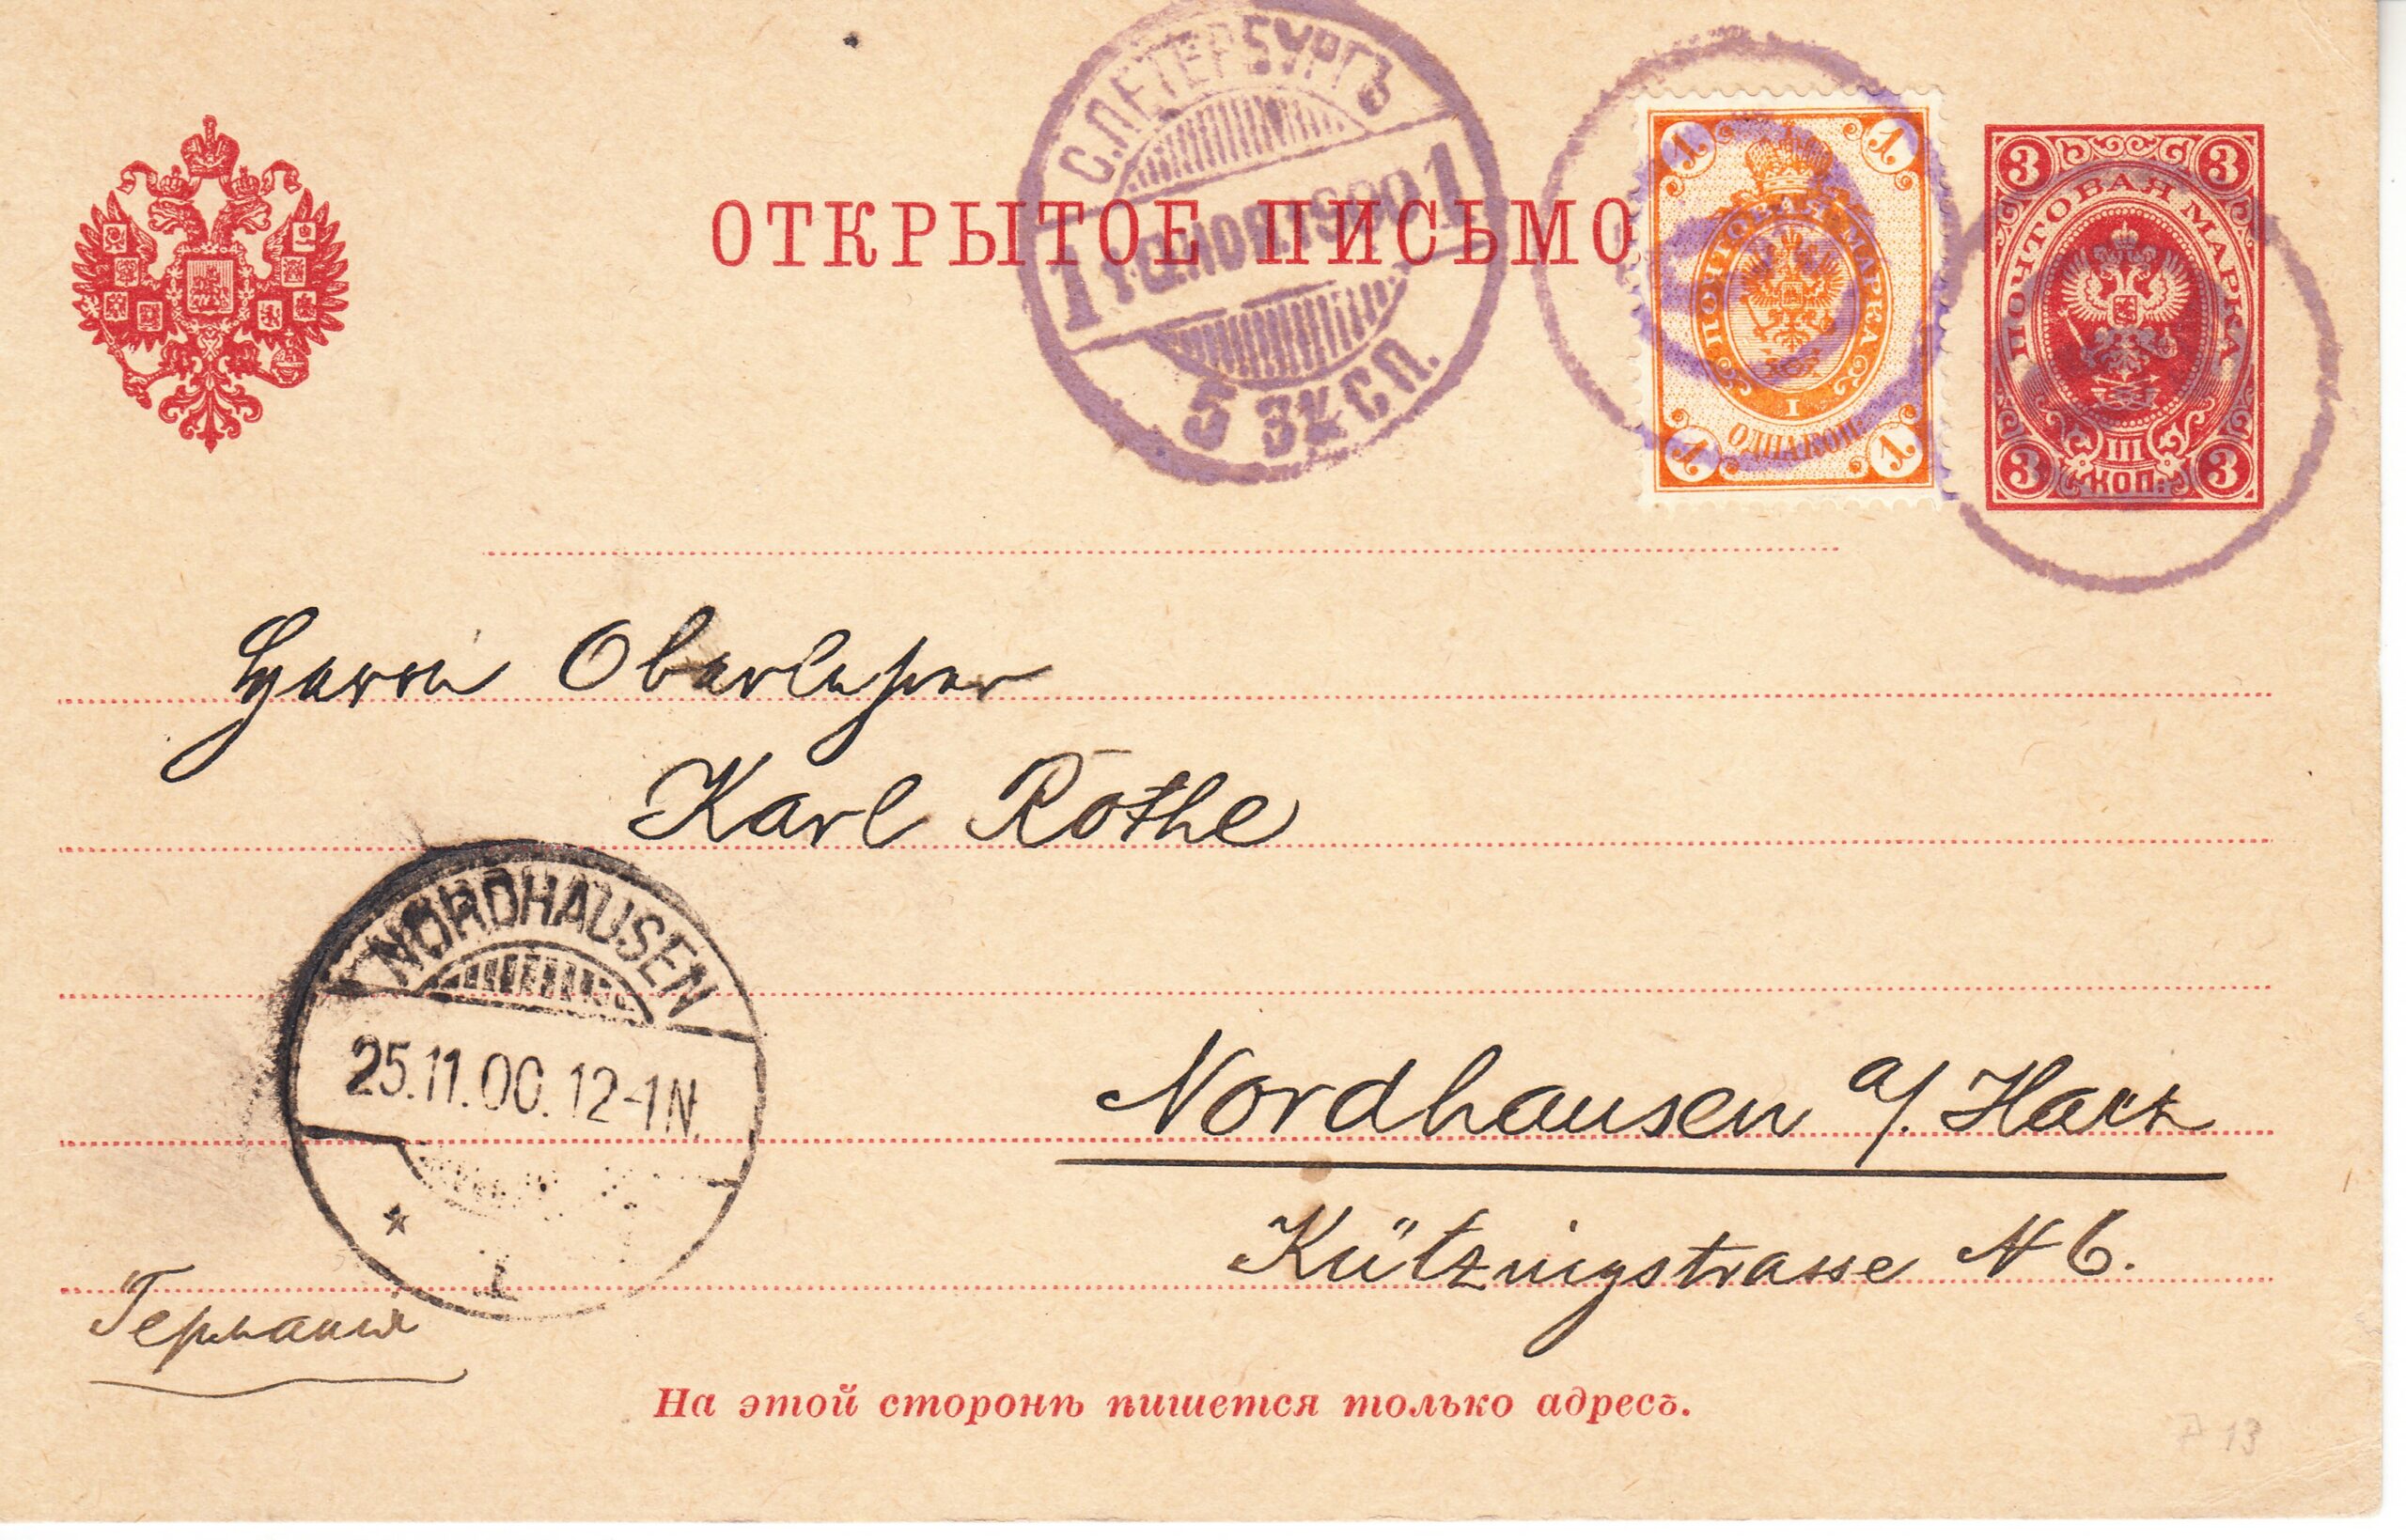 С.ПЕТЕРБУРГЪ
1900 1
5 ЭКСП.
ОТКРЫТОЕ ПИСЬМО
1 1
ПОЧТОВАЯ МАРКА
I
ОДНА КОП.
1 1
3 3
ПОЧТОВАЯ МАРКА
III
КОП.
3 3
Herrn Oberlehrer
Karl Rothe
NORDHAUSEN
25.11.00.12-1N.
* 1
Nordhausen a/. Harz
Kützingstrasse N 6.
Германия
На этой сторонѣ пишется только адресъ.
13